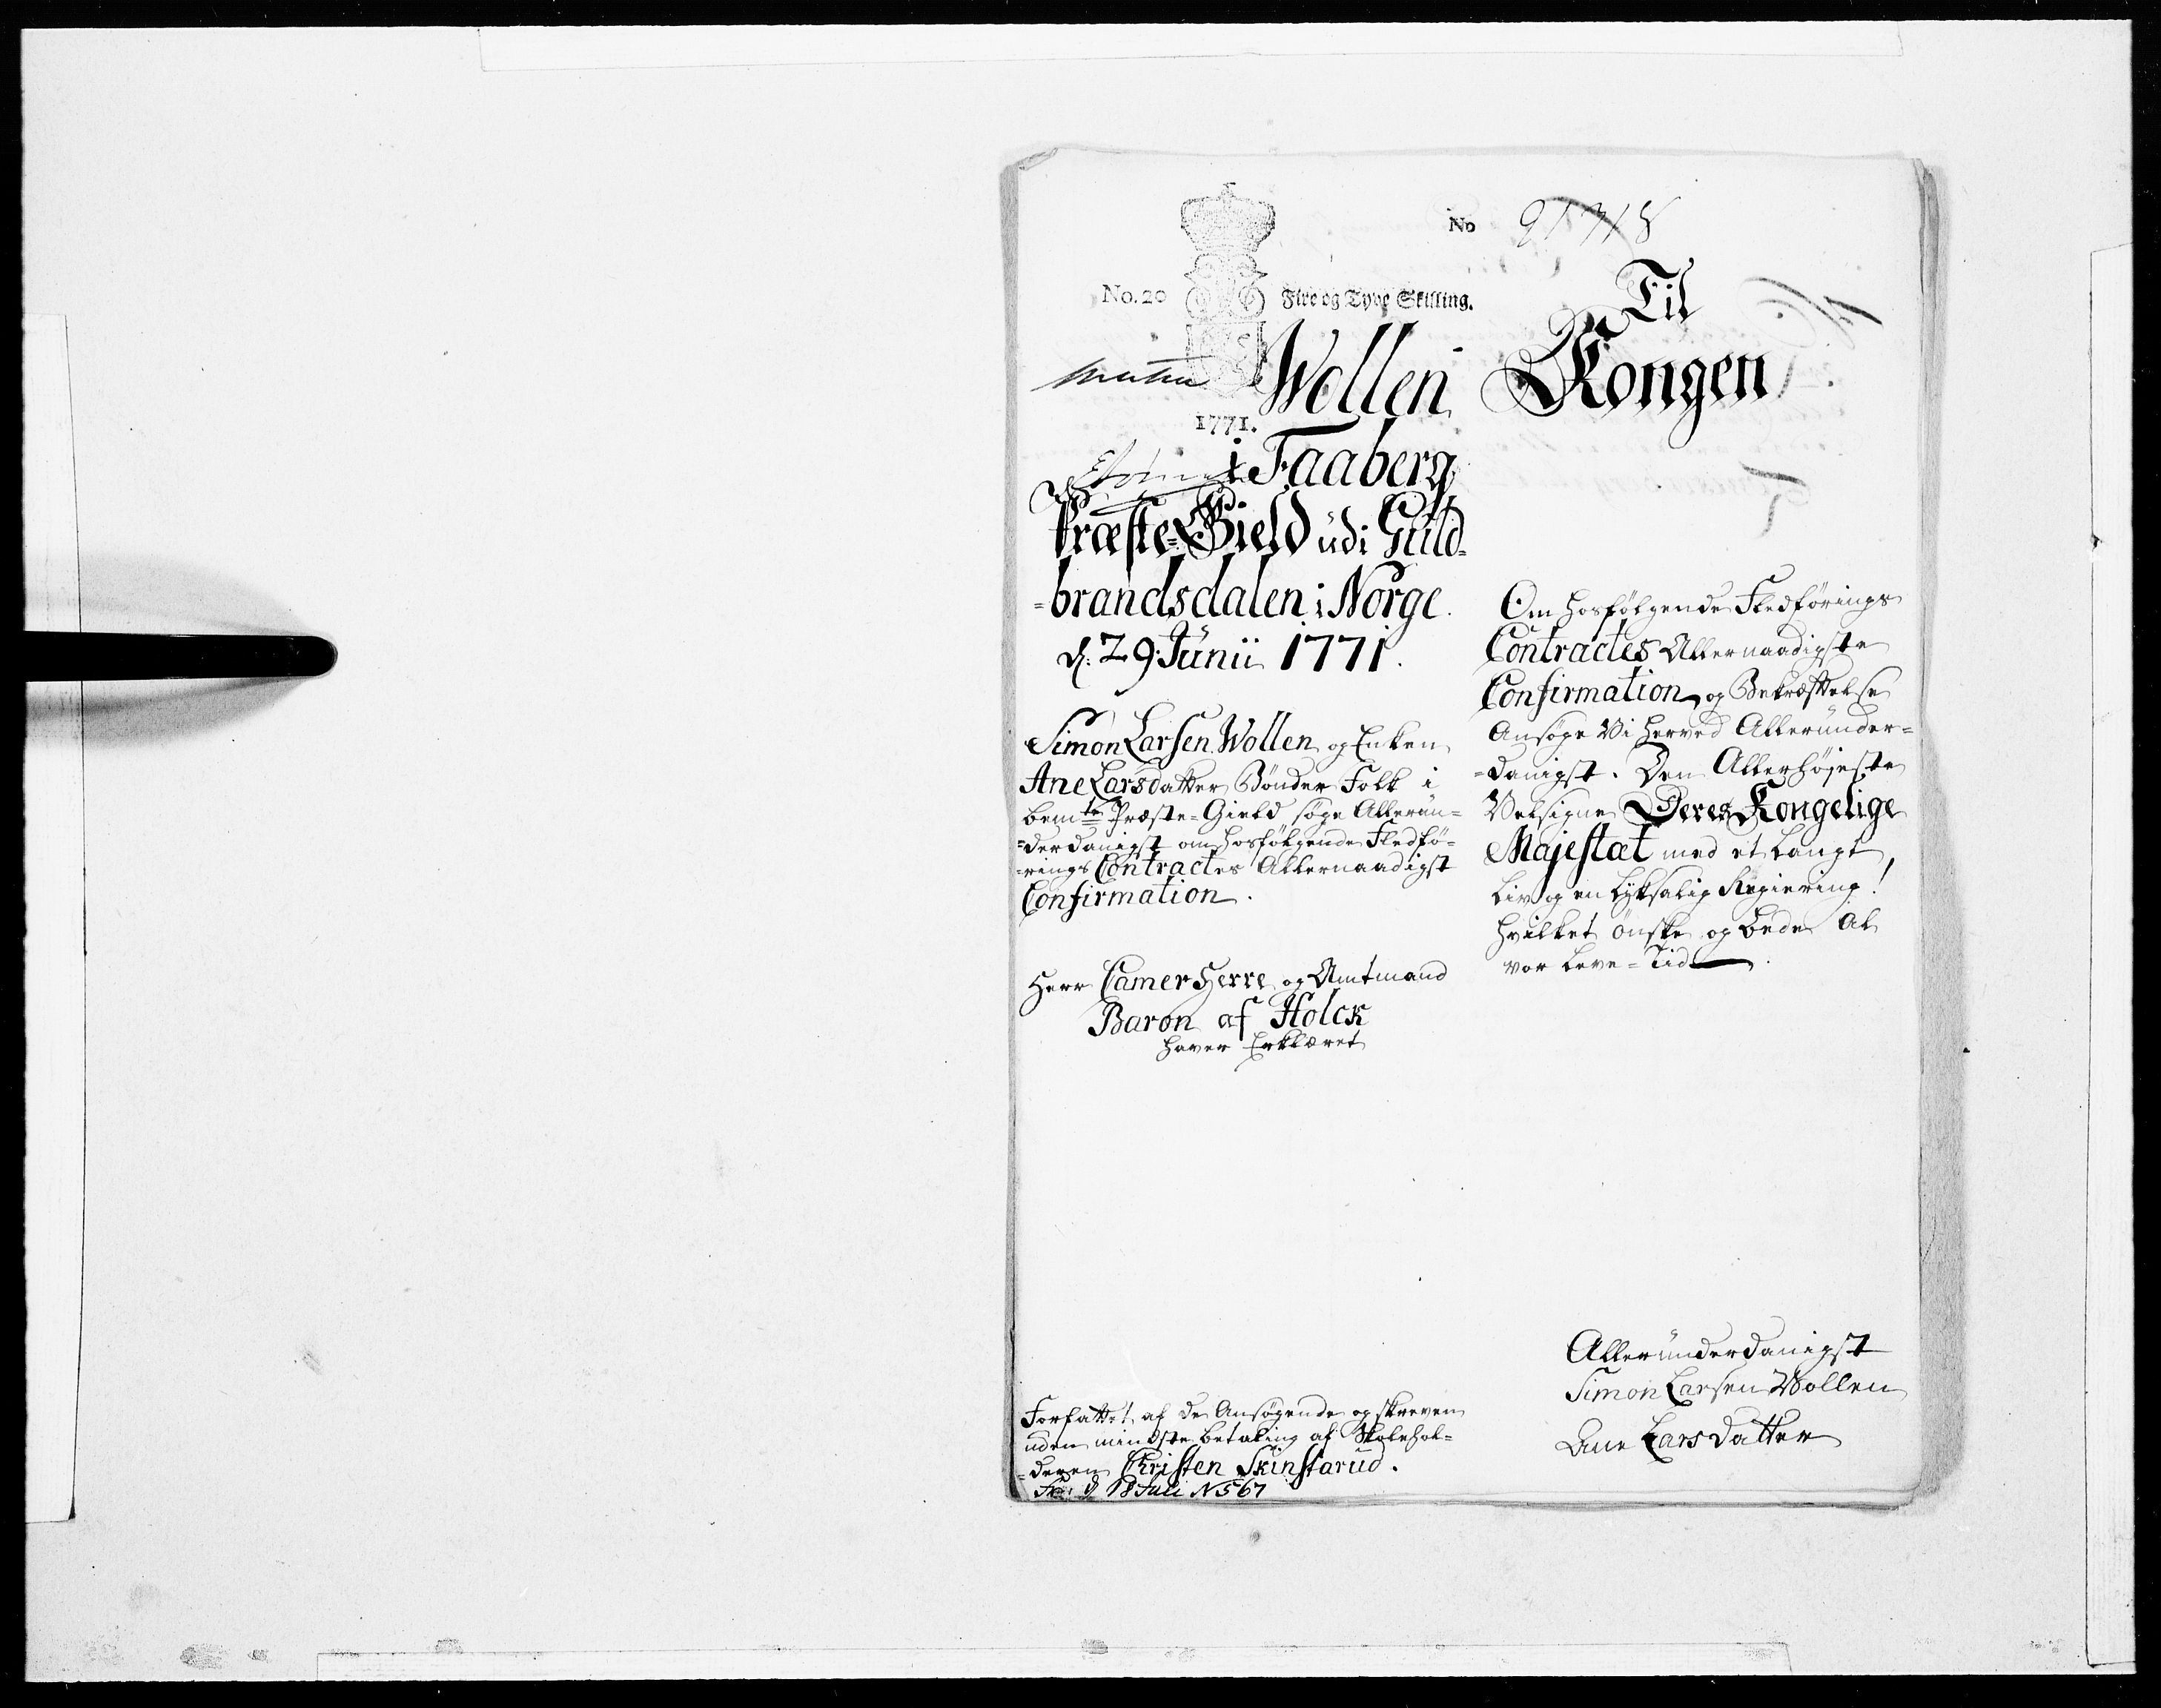 No. 20 Fire og Tyve Skilling.
1771.
Wollen
i Faaberg
Præste-Gield udi Guld-
=brandsdalen i Norge.
d: 29 Junii 1771.
Simon Larsen Wollen og Enken
Ane Larsdatter Bønder Folk i
bemte Præste-Gield søge Allerun-
=derdanigst om hosfølgende Fledfø-
=rings Contractes Allernaadigst
Confirmation.
Herr Camer Herre og Amtmand
Baron af Holck
haver Erklæret
Forfattet af de Ansøgende og skreven
uden mindste betaling af Skolehol-
=deren Christen Skinstarud.
d 18 Juli N 567
No 91718
Til
Kongen
Om hosfølgende Fledførings
Contractes Allernaadigste
Confirmation og Bekræftelse
Ansøge Vi herved Allerunder-
=danigst. Den Allerhøjeste
Velsigne Deres Kongelige
Majestæt med et langt
Liv og en lyksalig Regiering!
hvilket ønske og bede al
vor Leve-Tid
Allerunderdanigst
Simon Larsen Wollen
Ane Larsdatter